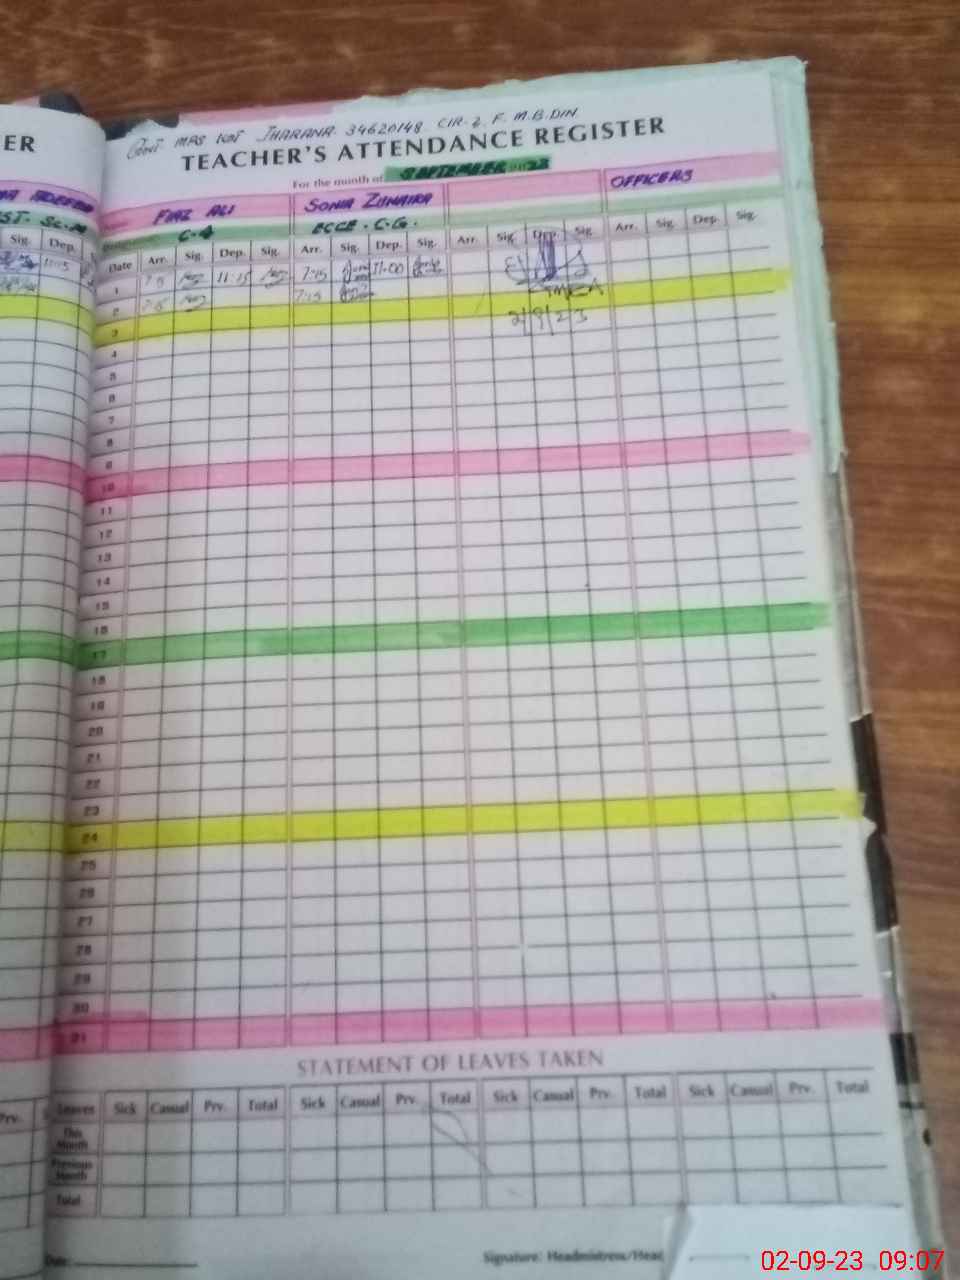 ER
GOVT MPS KOT JHARANA 34620148 CIR-2 F. M.B.DIN
TEACHER'S ATTENDANCE REGISTER
For the month of SEPTEMBER 2023
FIAZ ALI SONIA ZUNAIRA OFFICERS
ST. C-4 ECCE. C.G.
Sig. Dep. Date Arr. Sig. Dep. Sig. Arr. Sig. Dep. Sig. Arr. Sig. Dep. Sig. Arr. Sig. Dep. Sig.
1 7:5 11:15 7:15 11:00
2 7:5 7:15
3 2/9/23
4
5
6
7
8
9
10
11
12
13
14
15
16
17
18
19
20
21
22
23
24
25
26
27
28
29
30
31
STATEMENT OF LEAVES TAKEN
Prv. Leaves Sick Casual Prv. Total Sick Casual Prv. Total Sick Casual Prv. Total Sick Casual Prv. Total
This Month
Previous Month
Total
Date: Signature: Headmistress/Head
02-09-23 09:07